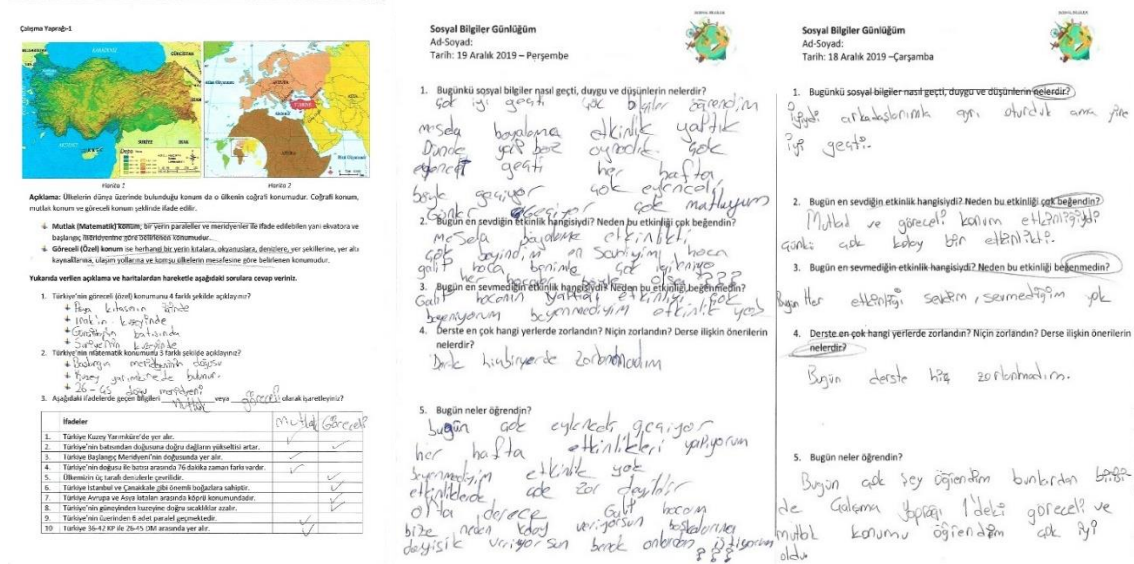 Çalışma Yaprağı-1
KARADENİZ
AKDENİZ
SURİYE
IRAK
Harita 1
Harita 2
Açıklama: Ülkelerin dünya üzerinde bulunduğu konum da o ülkenin coğrafi konumudur. Coğrafi konum,
mutlak konum ve göreceli konum şeklinde ifade edilir.
Mutlak (Matematik) konum; bir yerin paraleller ve meridyenler ile ifade edilebilen yani ekvatora ve
başlangıç meridyenine göre belirlenen konumudur.
Göreceli (Özel) konum ise herhangi bir yerin kıtalara, okyanuslara, denizlere, yer şekillerine, yer altı
kaynaklarına, ulaşım yollarına ve komşu ülkelerin mesafesine göre belirlenen konumudur.
Yukarıda verilen açıklama ve haritalardan hareketle aşağıdaki sorulara cevap veriniz.
1. Türkiye'nin göreceli (özel) konumunu 4 farklı şekilde açıklayınız?
kıtasının
Irak'ın kuzeyinde
Gürcistan'ın batısında
Suriye'nin kuzeyinde
2. Türkiye'nin matematik konumunu 3 farklı şekilde açıklayınız?
Başlangıç meridyeninin doğusu
Kuzey yarımkürede bulunur.
26 - 45 doğu meridyeni
3. Aşağıdaki ifadelerde geçen bilgileri Mutlak veya göreceli olarak işaretleyiniz?
İfadeler Mutlak Göreceli
1. Türkiye Kuzey Yarımküre'de yer alır.
2. Türkiye'nin batısından doğusuna doğru dağların yükseltisi artar.
3. Türkiye Başlangıç Meridyeni'nin doğusunda yer alır.
4. Türkiye'nin doğusu ile batısı arasında 76 dakika zaman farkı vardır.
5. Ülkemizin üç tarafı denizlerle çevrilidir.
6. Türkiye İstanbul ve Çanakkale gibi önemli boğazlara sahiptir.
7. Türkiye Avrupa ve Asya kıtaları arasında köprü konumundadır.
8. Türkiye'nin güneyinden kuzeyine doğru sıcaklıklar azalır.
9. Türkiye'nin üzerinden 6 adet paralel geçmektedir.
10 Türkiye 36-42 KP ile 26-45 DM arasında yer alır.
Sosyal Bilgiler Günlüğüm
Ad-Soyad:
Tarih: 19 Aralık 2019 – Perşembe
1. Bugünkü sosyal bilgiler nasıl geçti, duygu ve düşünlerin nelerdir?
Çok iyi geçti çok bilgiler öğrendim
mesela boyalama etkinlik yaptık
Dünde yap boz oynadık. çok
eğlenceli geçti her hafta
böyle geçiyor çok eylenceli
Günler geçiyor çok mutluyum
2. Bugün en sevdiğin etkinlik hangisiydi? Neden bu etkinliği çok beğendin?
Mesela boyalama etkinlikti
çok beyindim en hoca
galit hoca benimle çok ilgileniyo
her böyle olsa ???
3. Bugün en sevmediğin etkinlik hangisiydi? Neden bu etkinliği beğenmedin?
Galit hocanın yaptığı etkinliği çok
beyeniyorum beyenmediyim etkinlik yok
4. Derste en çok hangi yerlerde zorlandın? Niçin zorlandın? Derse ilişkin önerilerin
nelerdir?
hiçbiryerde zorlanmadım
5. Bugün neler öğrendin?
bugün çok eylenceli geçiyor
her hafta etkinlikleri yapıyorum
beyenmediyim etkinlik yok
etkinliklerde çok zor deyildir
orta derece Galit hocam
bize neden kolay veriyorsun başkalarına
deyişik veriyorsun bende onlardan istiyorum
???
Sosyal Bilgiler Günlüğüm
Ad-Soyad:
Tarih: 18 Aralık 2019 –Çarşamba
1. Bugünkü sosyal bilgiler nasıl geçti, duygu ve düşünlerin nelerdir?
İyiydi arkadaşlarımla ayrı oturduk ama yine
iyi geçti.
2. Bugün en sevdiğin etkinlik hangisiydi? Neden bu etkinliği çok beğendin?
Mutlad ve göreceli konum etkinliğiydi
günkü çok kolay bir etkinlikti.
3. Bugün en sevmediğin etkinlik hangisiydi? Neden bu etkinliği beğenmedin?
Bugün Her etkinliği sevdim, sevmediğim yok
4. Derste en çok hangi yerlerde zorlandın? Niçin zorlandın? Derse ilişkin önerilerin
nelerdir?
Bugün derste hiç zorlanmadım.
5. Bugün neler öğrendin?
Bugün çok şey öğrendim bunlardan
de Çalışma Yaprağı 1'deki göreceli ve
mutlak konumu öğrendim çok iyi
oldu.